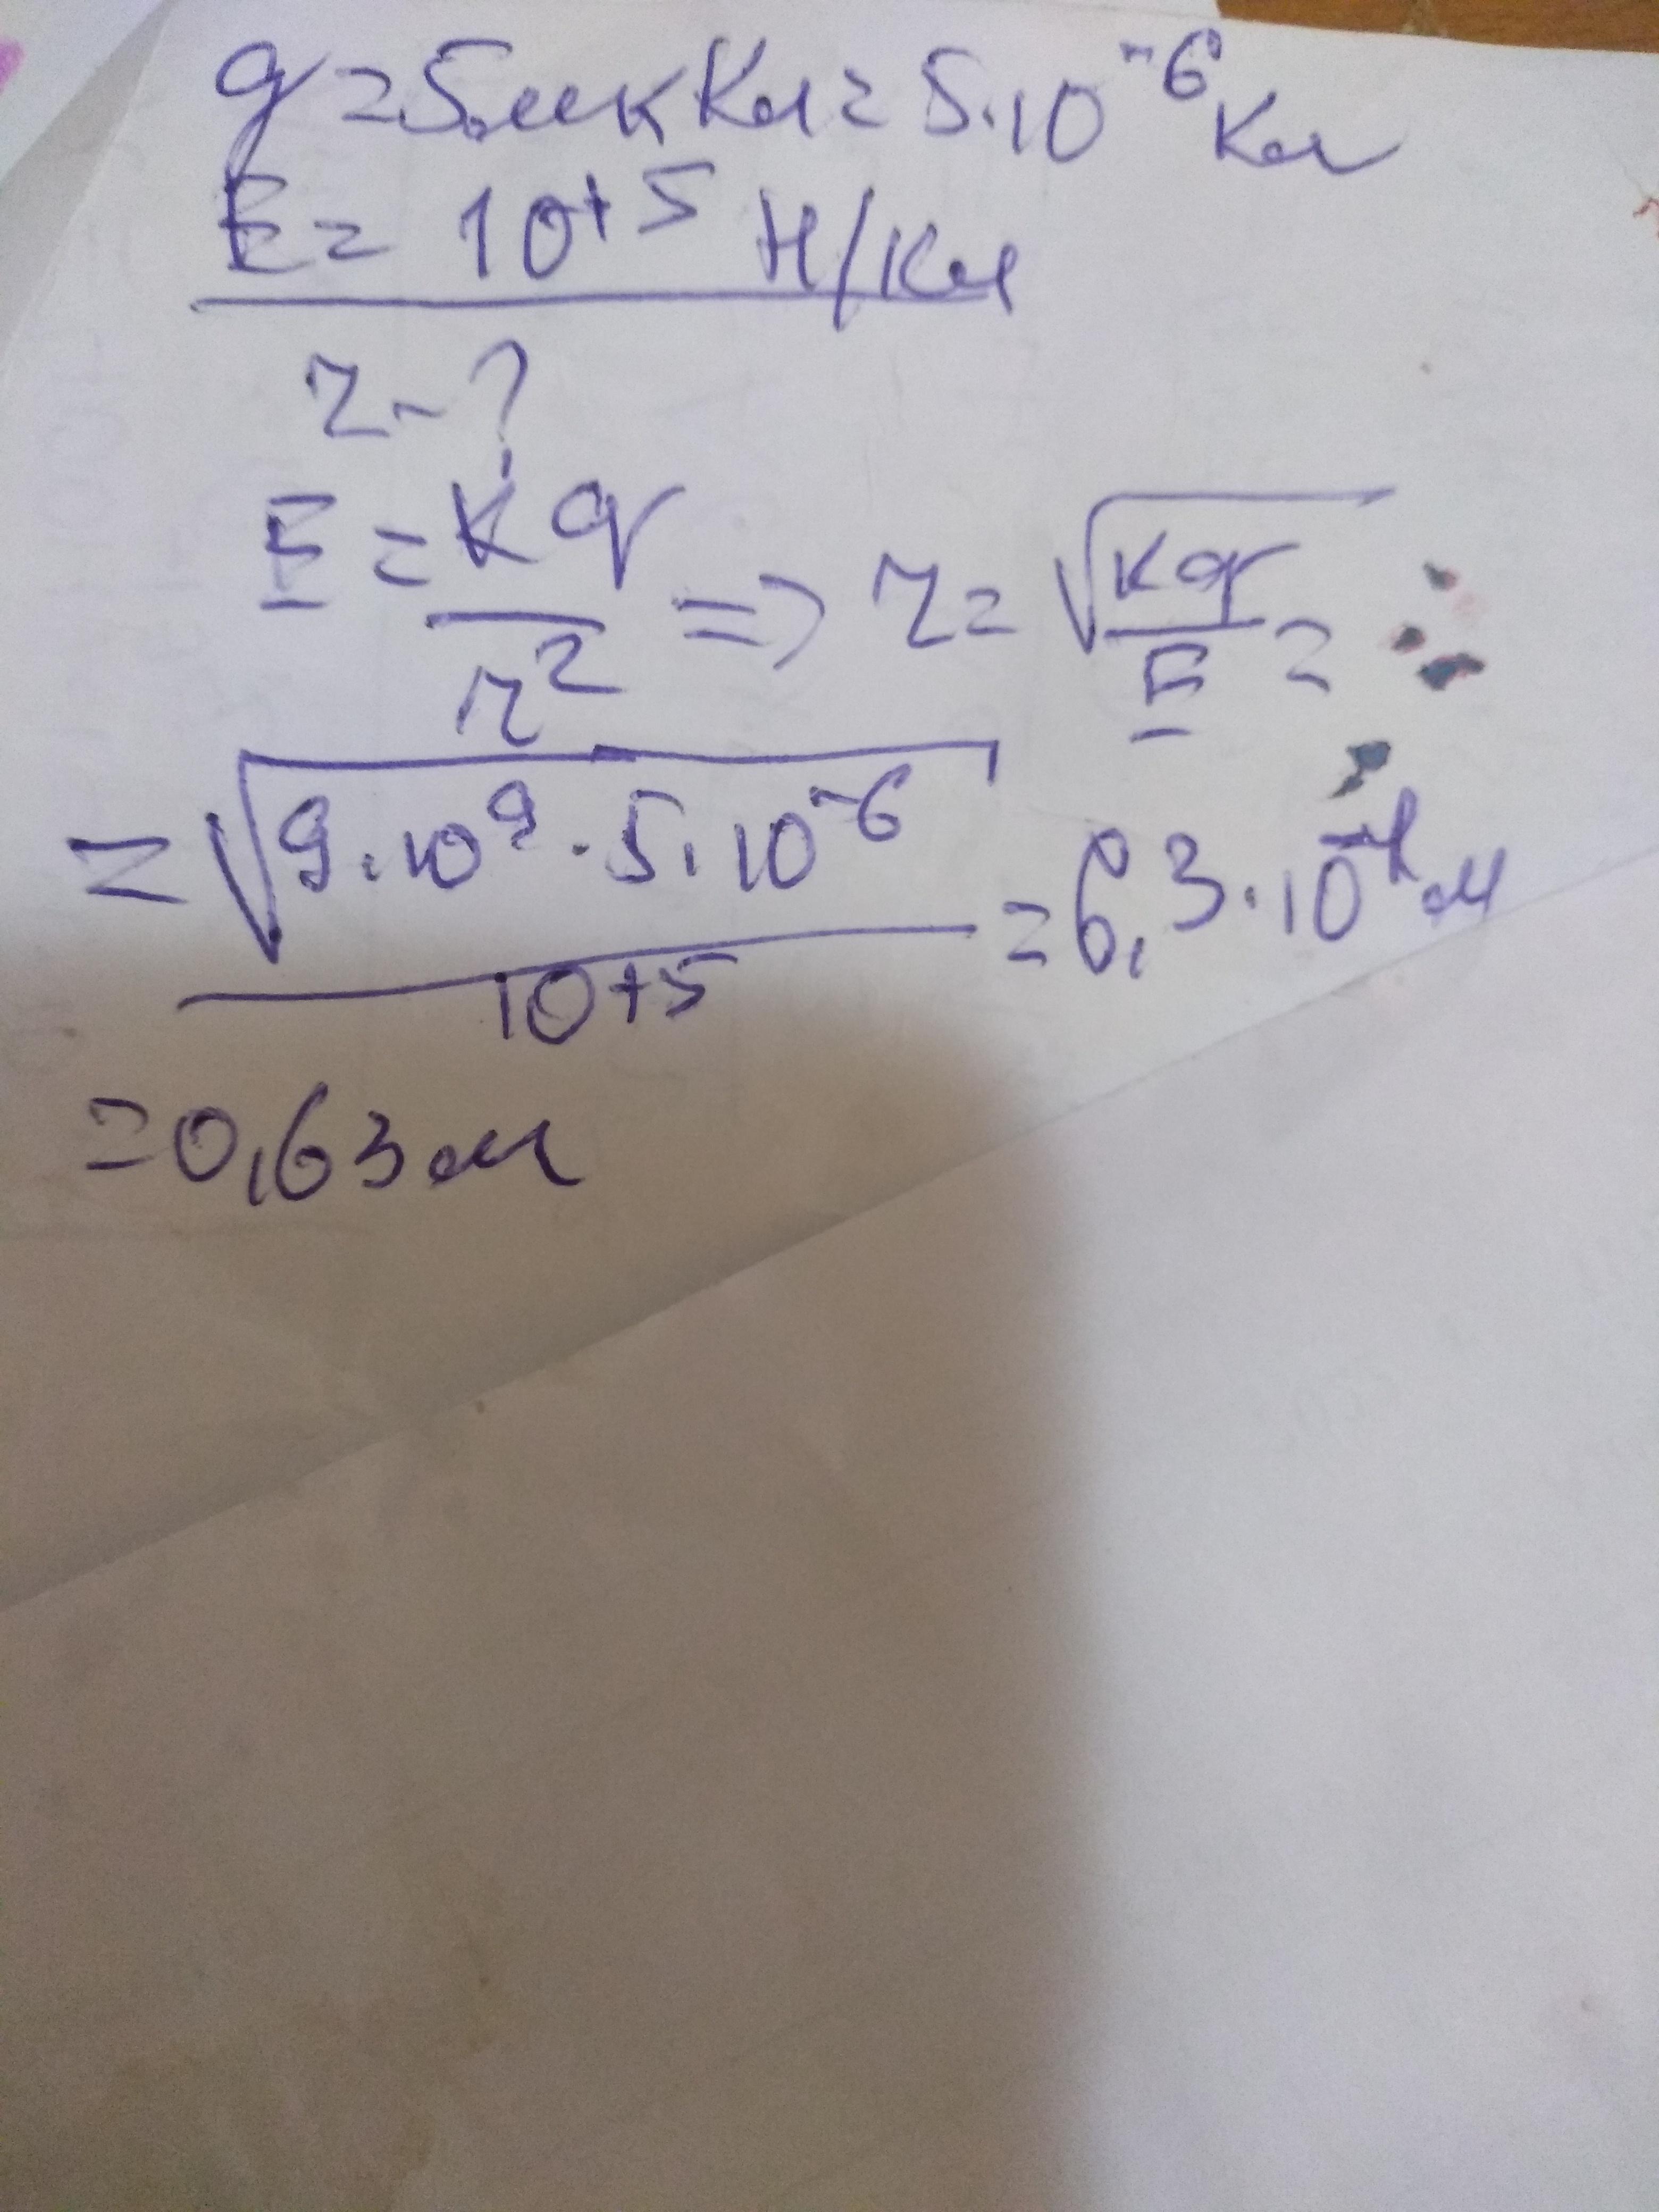 q = 5мкКл = 5·10⁻⁶ Кл
E = 10⁺⁵ Н/Кл
r - ?
E = kq/r² => r = √(kq/E) =
= √(9·10⁹·5·10⁻⁶/10⁺⁵) = 6,3·10⁻¹ м
= 0,63 м